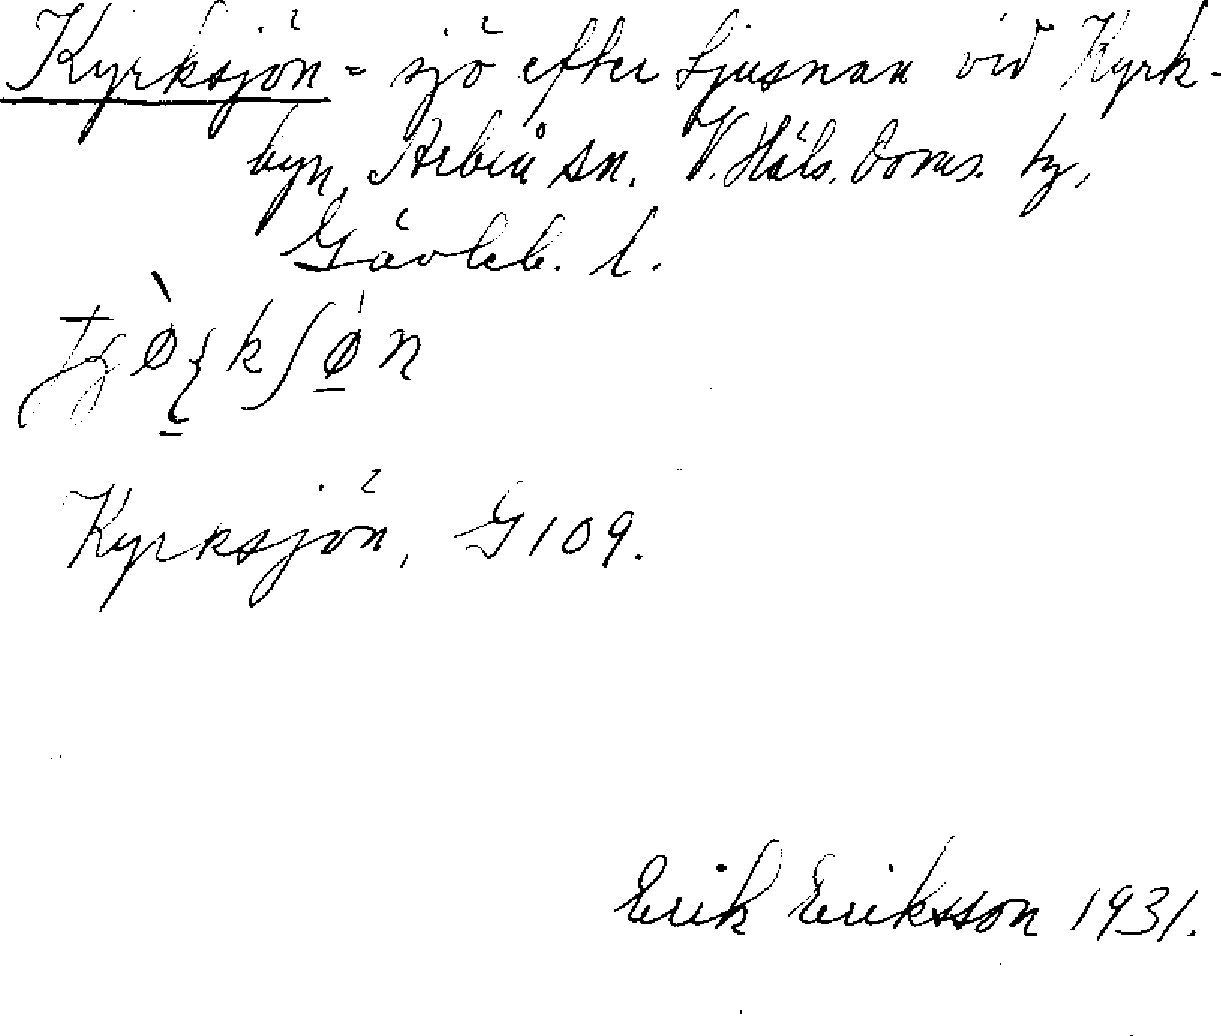 Kyrksjön = sjö efter Ljusnan vid Kyrk-
byn, Arbrå sn. V. Häls. doms. tg,
Gävleb. l.
Kyrksjön, G109.
Erik Eriksson 1931.